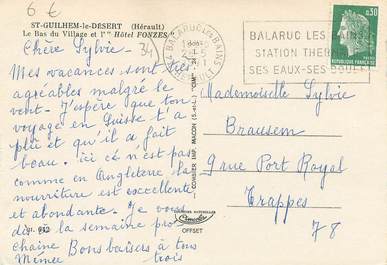 6 €
ST-GUILHEM-le-DÉSERT (Hérault)
Le Bas du Village et l'" Hôtel FONZES "
34
Chère Sylvie.
Mes vacances sont très
agréables malgré le
vent. J'espère que ton
voyage en Suisse t'a
plu et qu'il a fait
beau. ici cé n'est pas
comme en Angleterre la
nourriture est excellente
et abondante. Je vous
dis à la semaine pro-
chaine Bons baisers à tous
Mémée trois
OFFSET
COMBIER IMP. MACON (S.-et-L.)
34 BALARUC-LES-BAINS
HERAULT
BALARUC LES BAINS
STATION THERMALE
SES EAUX-SES BOUES
0,30
Mademoiselle Sylvie
Brausem
9 rue Port Royal
Trappes
78